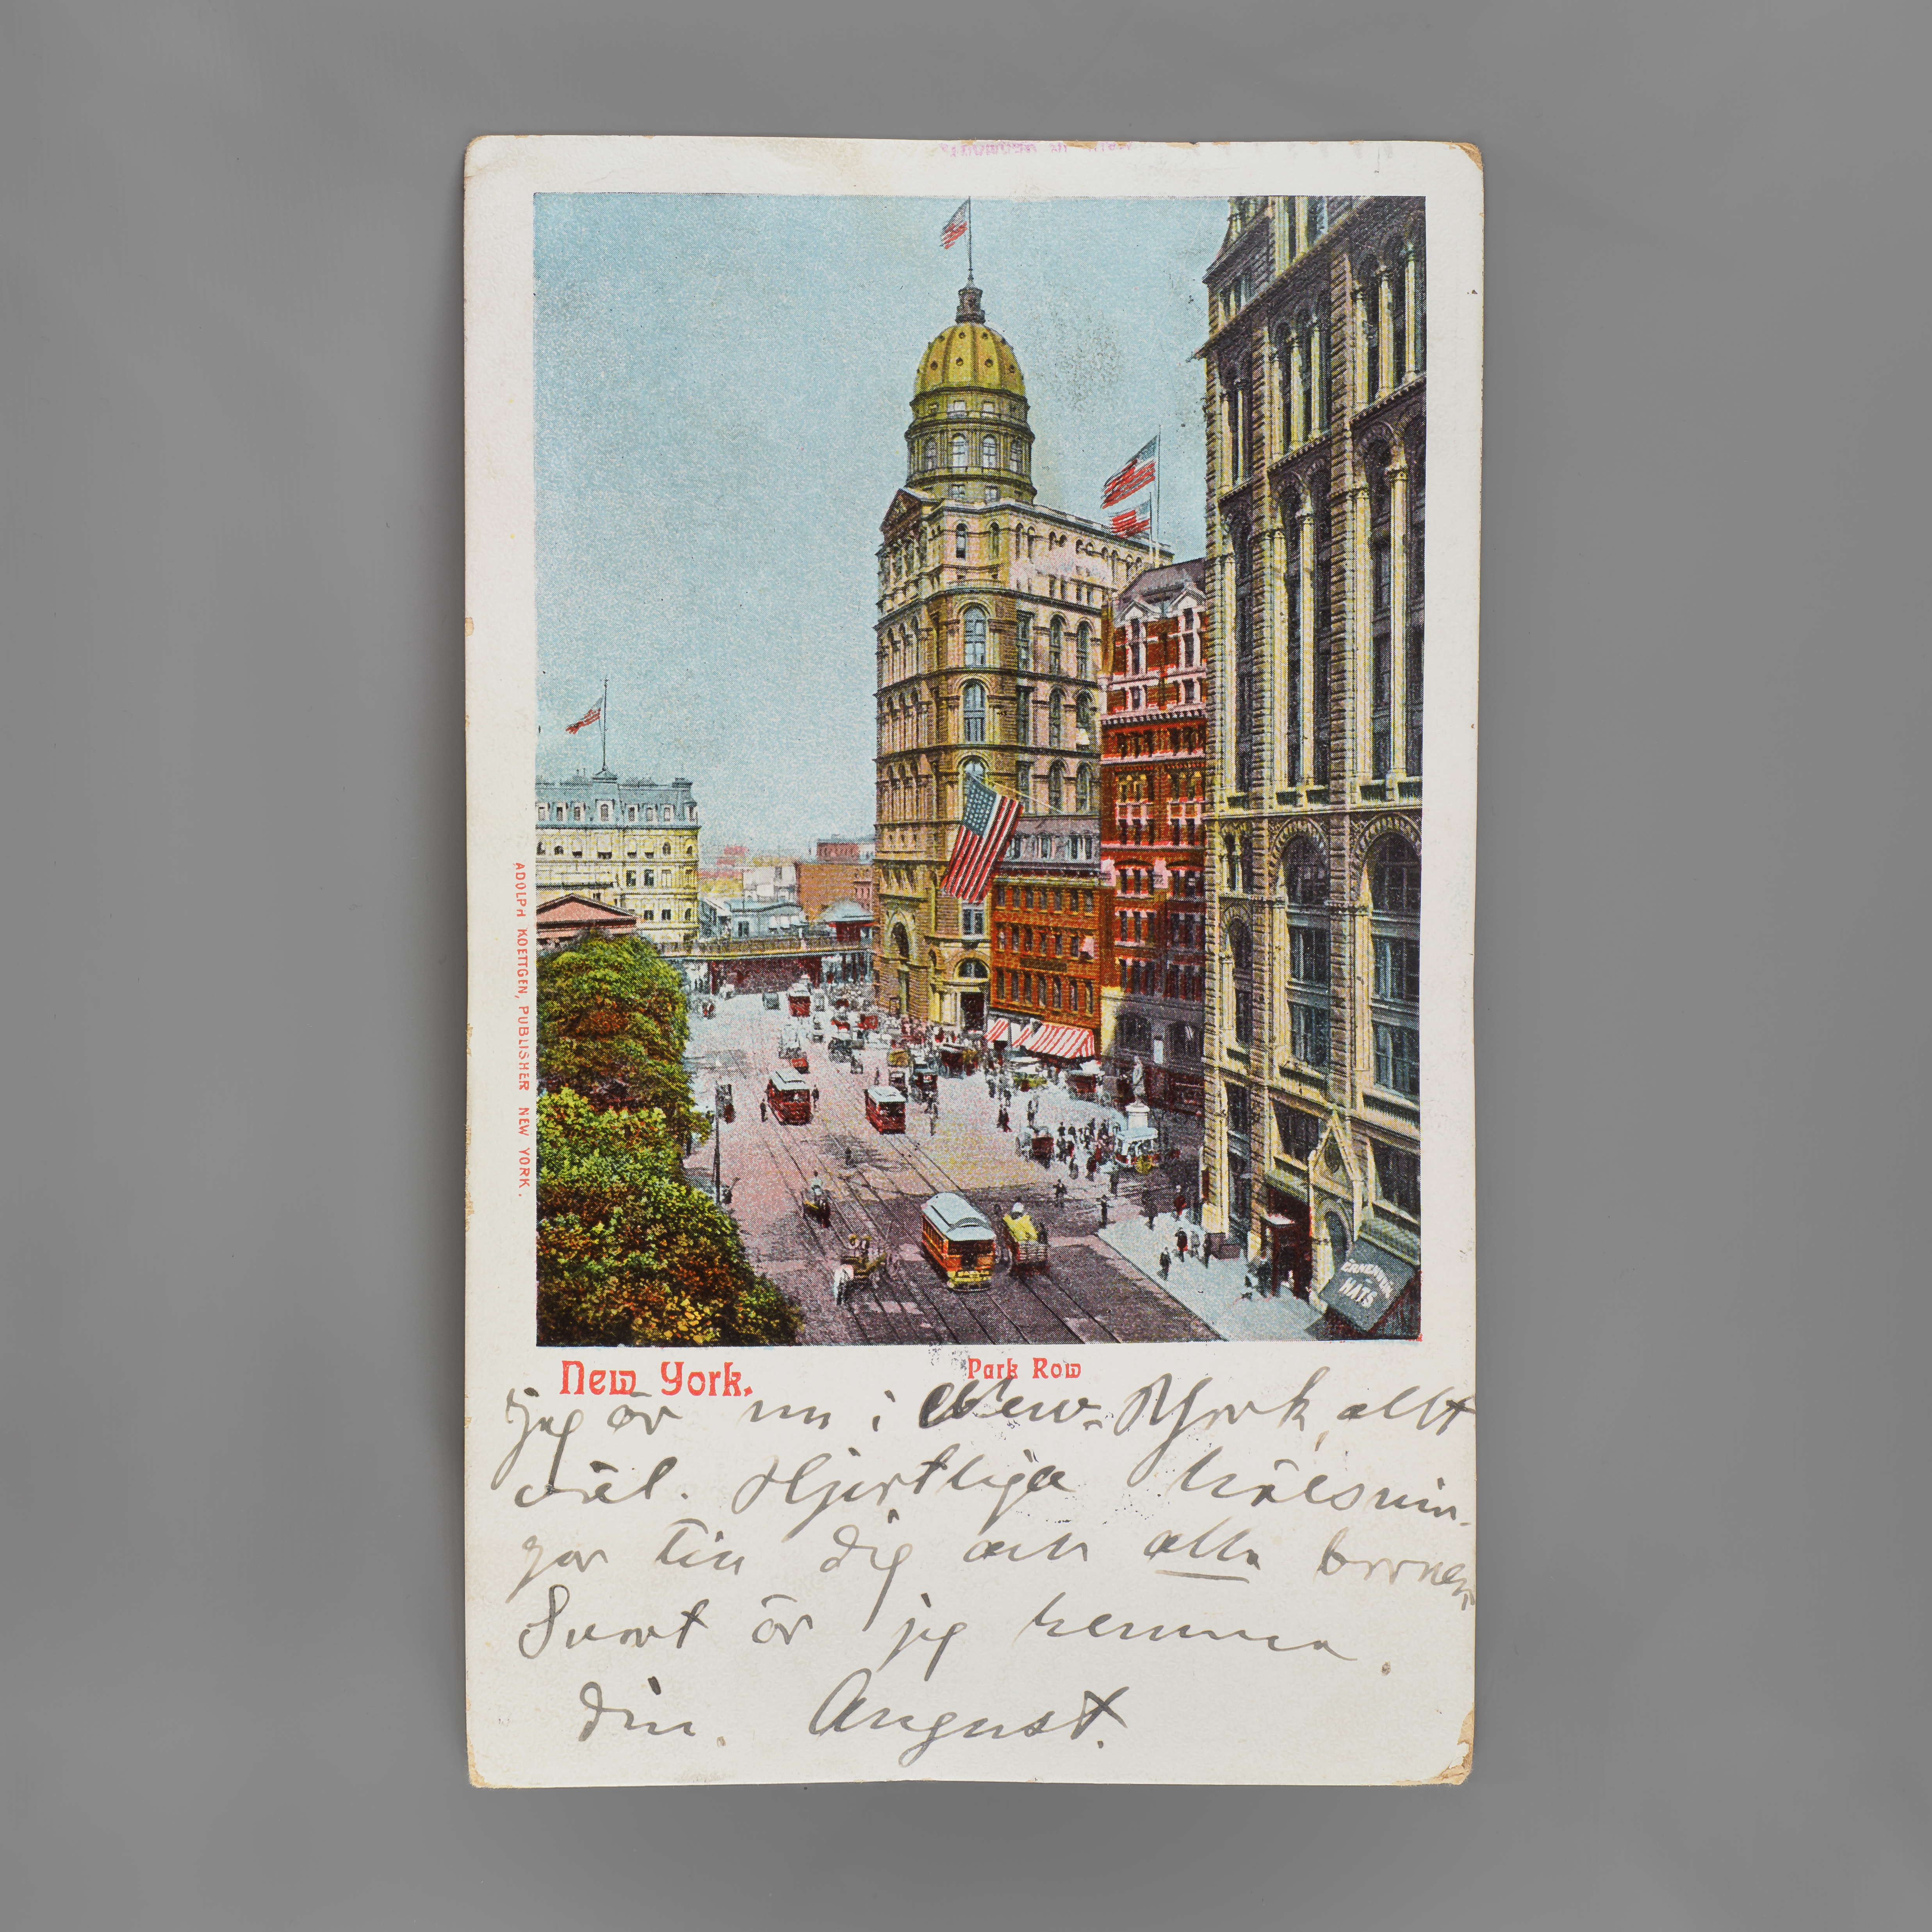 ADOLPH KOETTGEN, PUBLISHER NEW YORK.
HATS
New York.
Park Row
jag är nu i New-York, allt
väl. Hjertliga hälsnin-
gar till dig och alla barnen
Snart är jag hemma.
din. August.